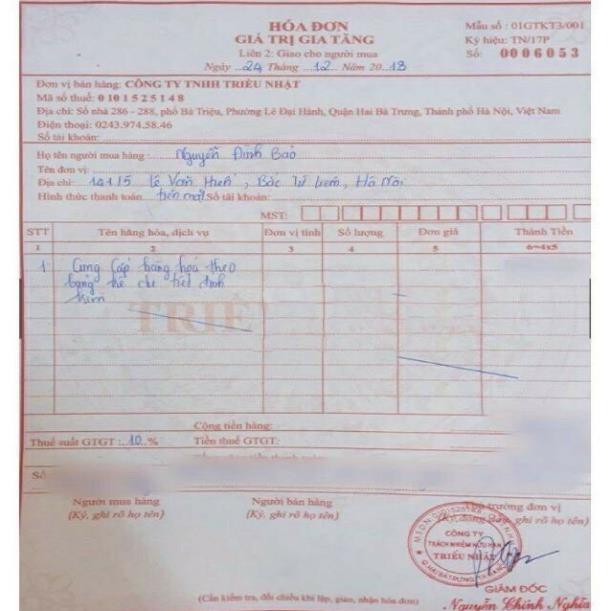 HÓA ĐƠN
GIÁ TRỊ GIA TĂNG
Liên 2: Giao cho người mua
Ngày 24 Tháng 12 Năm 2018
Mẫu số : 01GTKT3/001
Ký hiệu: TN/17P
Số: 0006053
Đơn vị bán hàng: CÔNG TY TNHH TRIỀU NHẬT
Mã số thuế: 0101525148
Địa chỉ: Số nhà 286 - 288, phố Bà Triệu, Phường Lê Đại Hành, Quận Hai Bà Trưng, Thành phố Hà Nội, Việt Nam
Điện thoại: 0243.974.58.46
Số tài khoản:
Họ tên người mua hàng: Nguyễn Đình Bảo
Tên đơn vị:
Địa chỉ: Lê Văn Hiến, Bắc Từ Liêm, Hà Nội
Hình thức thanh toán: tiền mặt Số tài khoản:
MST:
STT Tên hàng hóa, dịch vụ Đơn vị tính Số lượng Đơn giá Thành Tiền
1 2 3 4 5 6=4x5
1 Cung cấp hàng hoá theo
bảng kê chi tiết đính
kèm
TRIỀU
Cộng tiền hàng:
Thuế suất GTGT : 10 % Tiền thuế GTGT:
Số
Người mua hàng Người bán hàng Thủ trưởng đơn vị
(Ký, ghi rõ họ tên) (Ký, ghi rõ họ tên) (Ký, đóng dấu, ghi rõ họ tên)
CÔNG TY
TRÁCH NHIỆM HỮU HẠN
TRIỀU NHẬT
GIÁM ĐỐC
Nguyễn Chính Nghĩa
(Cần kiểm tra, đối chiếu khi lập, giao, nhận hóa đơn)